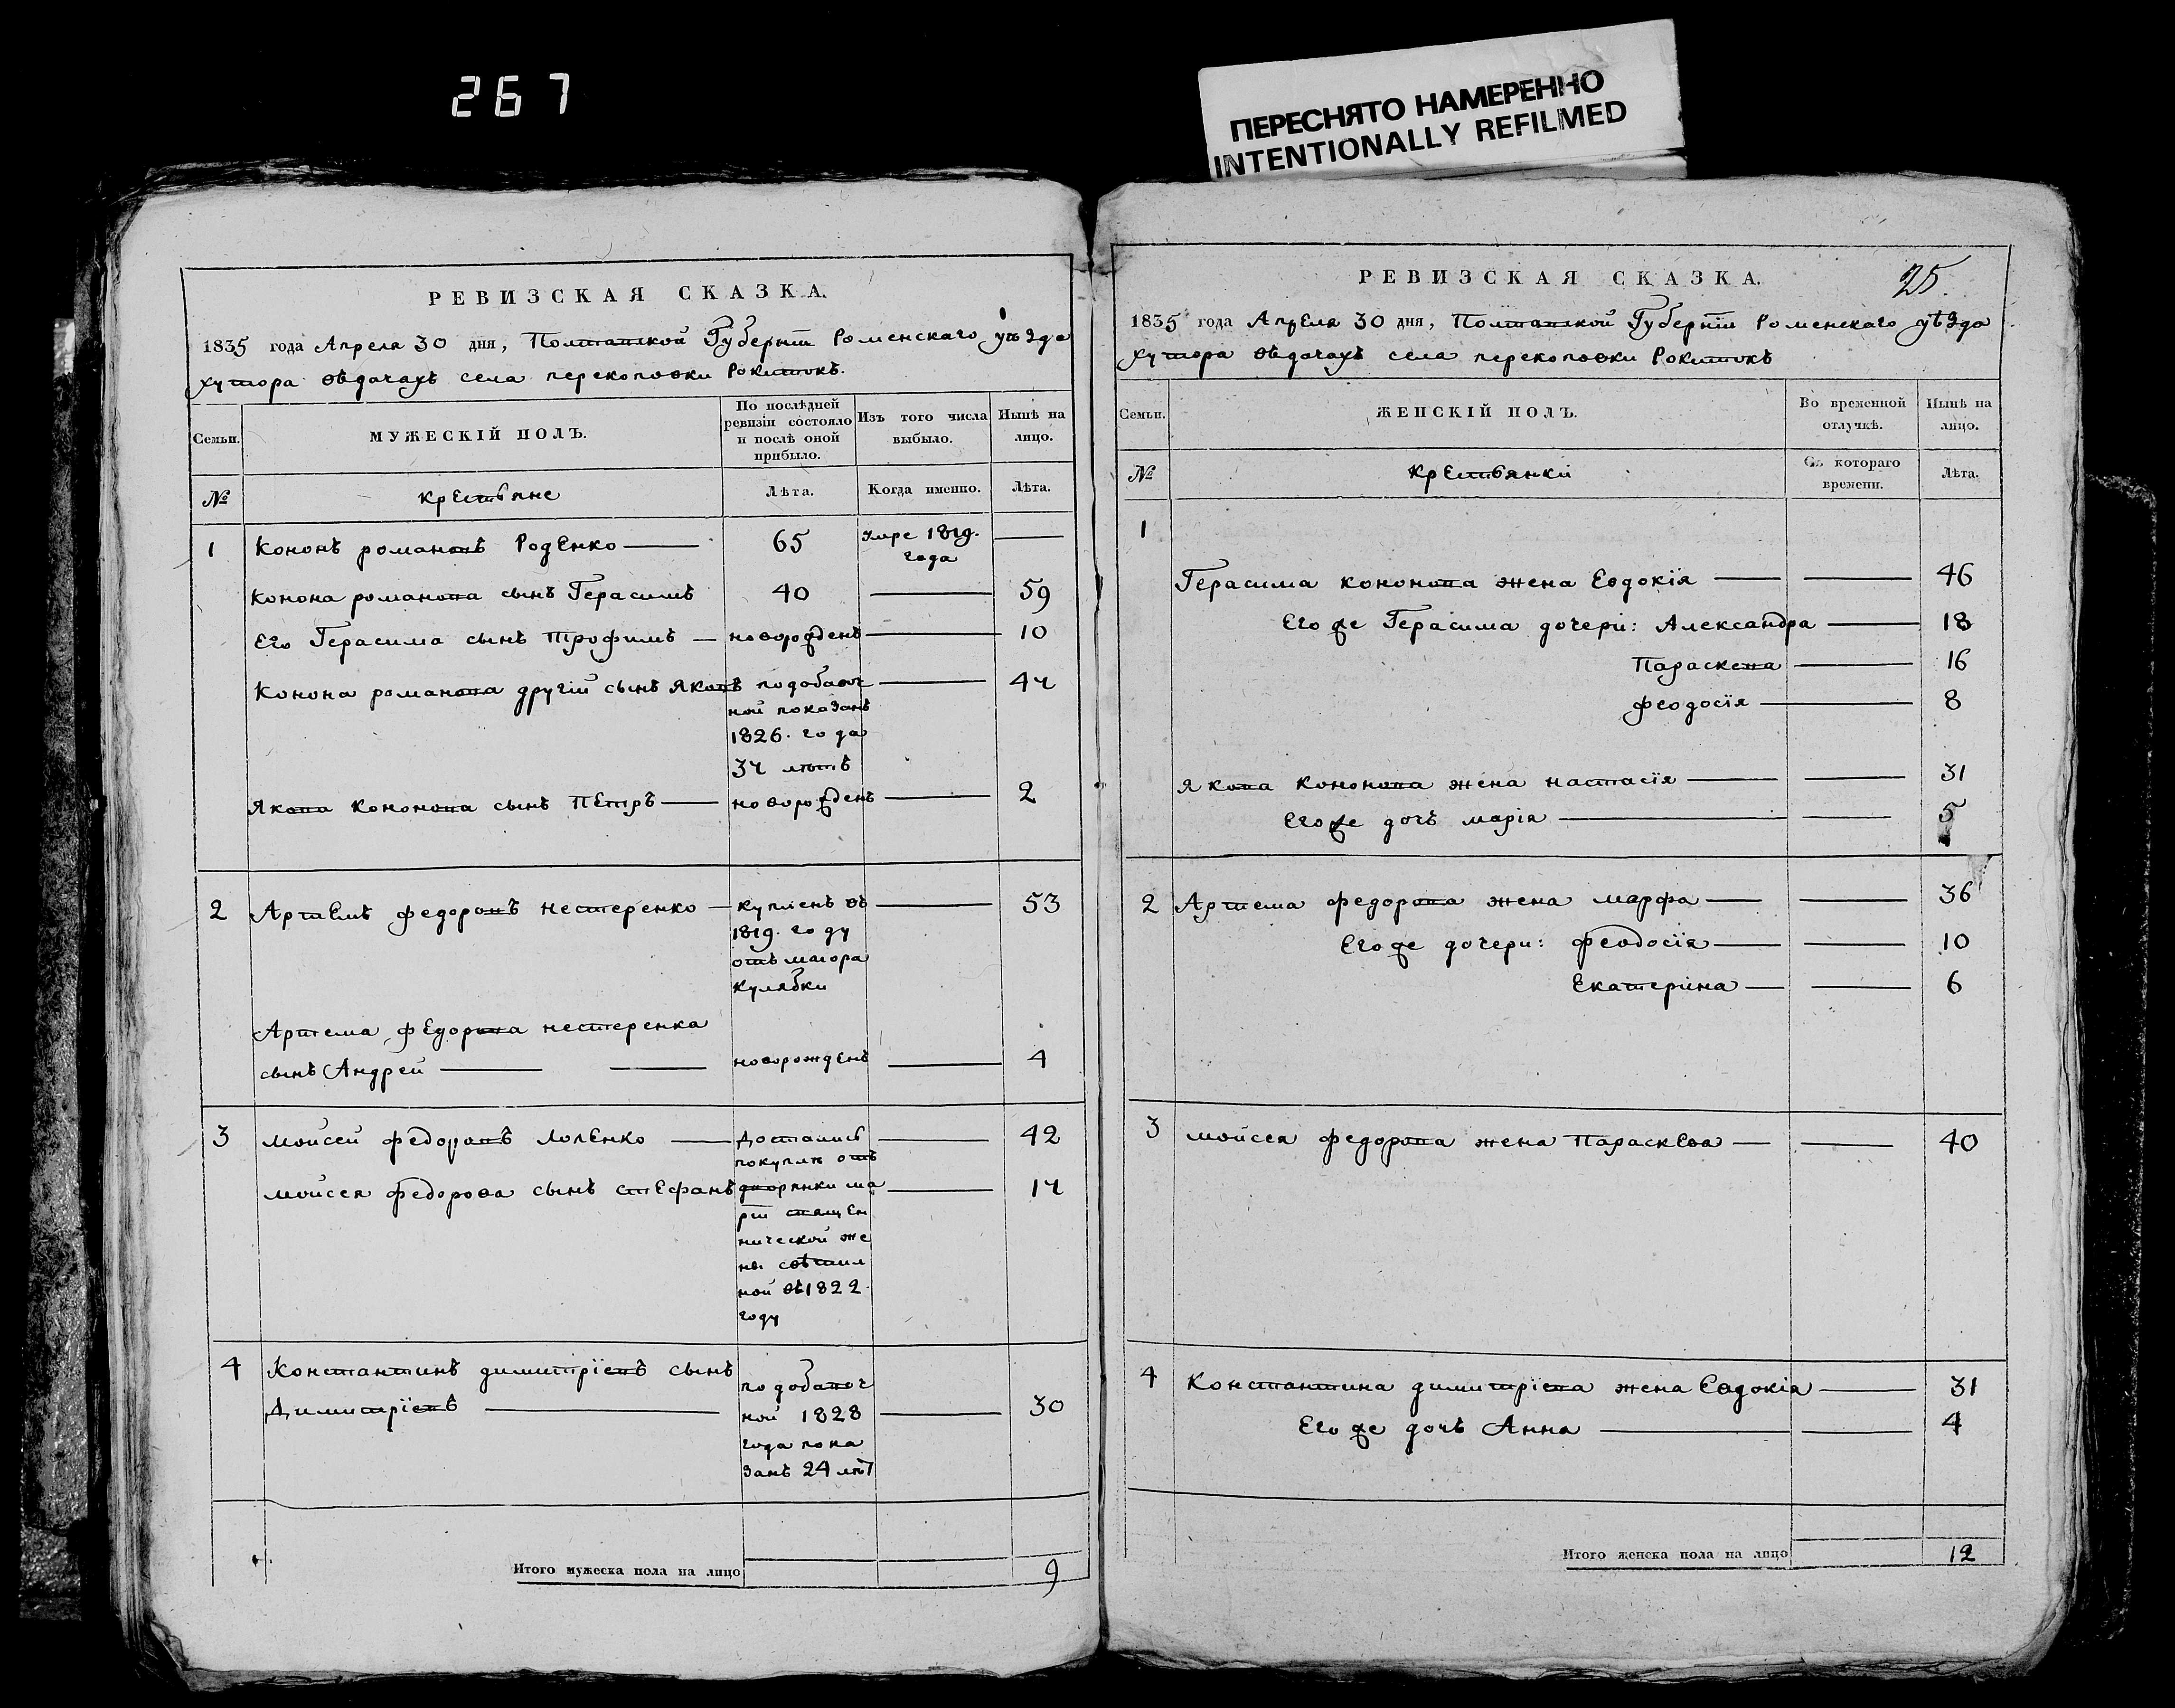 267
ПЕРЕСНЯТО НАМЕРЕННО
INTENTIONALLY REFILMED
РЕВИЗСКАЯ СКАЗКА.
1835 года Апреля 30 дня, Полтавской Губернїи Роменскаго уѣзда
хутора въдачахъ села перекоповки Рокитокъ.
Семьи.
МУЖЕСКІЙ ПОЛЪ.
По послѣдней ревизіи состояло и послѣ оной прибыло.
Изъ того числа выбыло.
Нынѣ на лицо.
№
крестьяне
Лѣта.
Когда именно.
Лѣта.
1 Кононъ романовъ Роденко — 65 Умре 1819. года —
Конона романова сынъ Герасимъ 40 — 59
Его Герасима сынъ трофимъ — новорожденъ — 10
Конона романова другій сынъ Яковъ подобавоч — 44
ной показанъ
1826. года
34 лѣтъ
Якова Кононова сынъ Петръ — новорожденъ — 2
2 Артемъ федоровъ нестеренко — купленъ въ — 53
1819. году
отъ маіора
Кулябки
Артема федорова нестеренка
сынъ Андрей — новорожденъ — 4
3 мойсей федоровъ Лоленко — достались — 42
покупли отъ
мойсея федорова сынъ стефанъ дворянки ма — 14
рїи священ
нической же
ны свѣтил
ной въ 1822.
году
4 Константинъ димитрїевъ сынъ
Димитрїевъ — подавоч
ной 1828 — 30
года пока
занъ 24 лѣт
Итого мужеска пола на лицо 9
РЕВИЗСКАЯ СКАЗКА.
25.
1835 года Апреля 30 дня, Полтавской Губернїи Роменскаго уѣзда
хутора въдачахъ села перекоповки Рокитокъ
Семьи.
ЖЕНСКІЙ ПОЛЪ.
Во временной отлучкѣ.
Нынѣ на лицо.
№
крестьянки
Съ котораго времени.
Лѣта.
1
Герасима кононова жена Евдокія — — 46
Его же Герасима дочери: Александра — 18
Параскева — 16
феодосїя — 8
Якова Кононова жена настасїя — — 31
Его же дочь марія — — 5
2 Артема федорова жена марфа — — 36
Его же дочери: феодосїя — — 10
Екатерина — — 6
3 мойсея федорова жена Параскева — — 40
4 Константина димитрїева жена Евдокія — 31
Его же дочь Анна — — 4
Итого женска пола на лицо 12